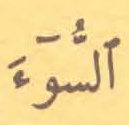 ٱلسُّوٓءَ